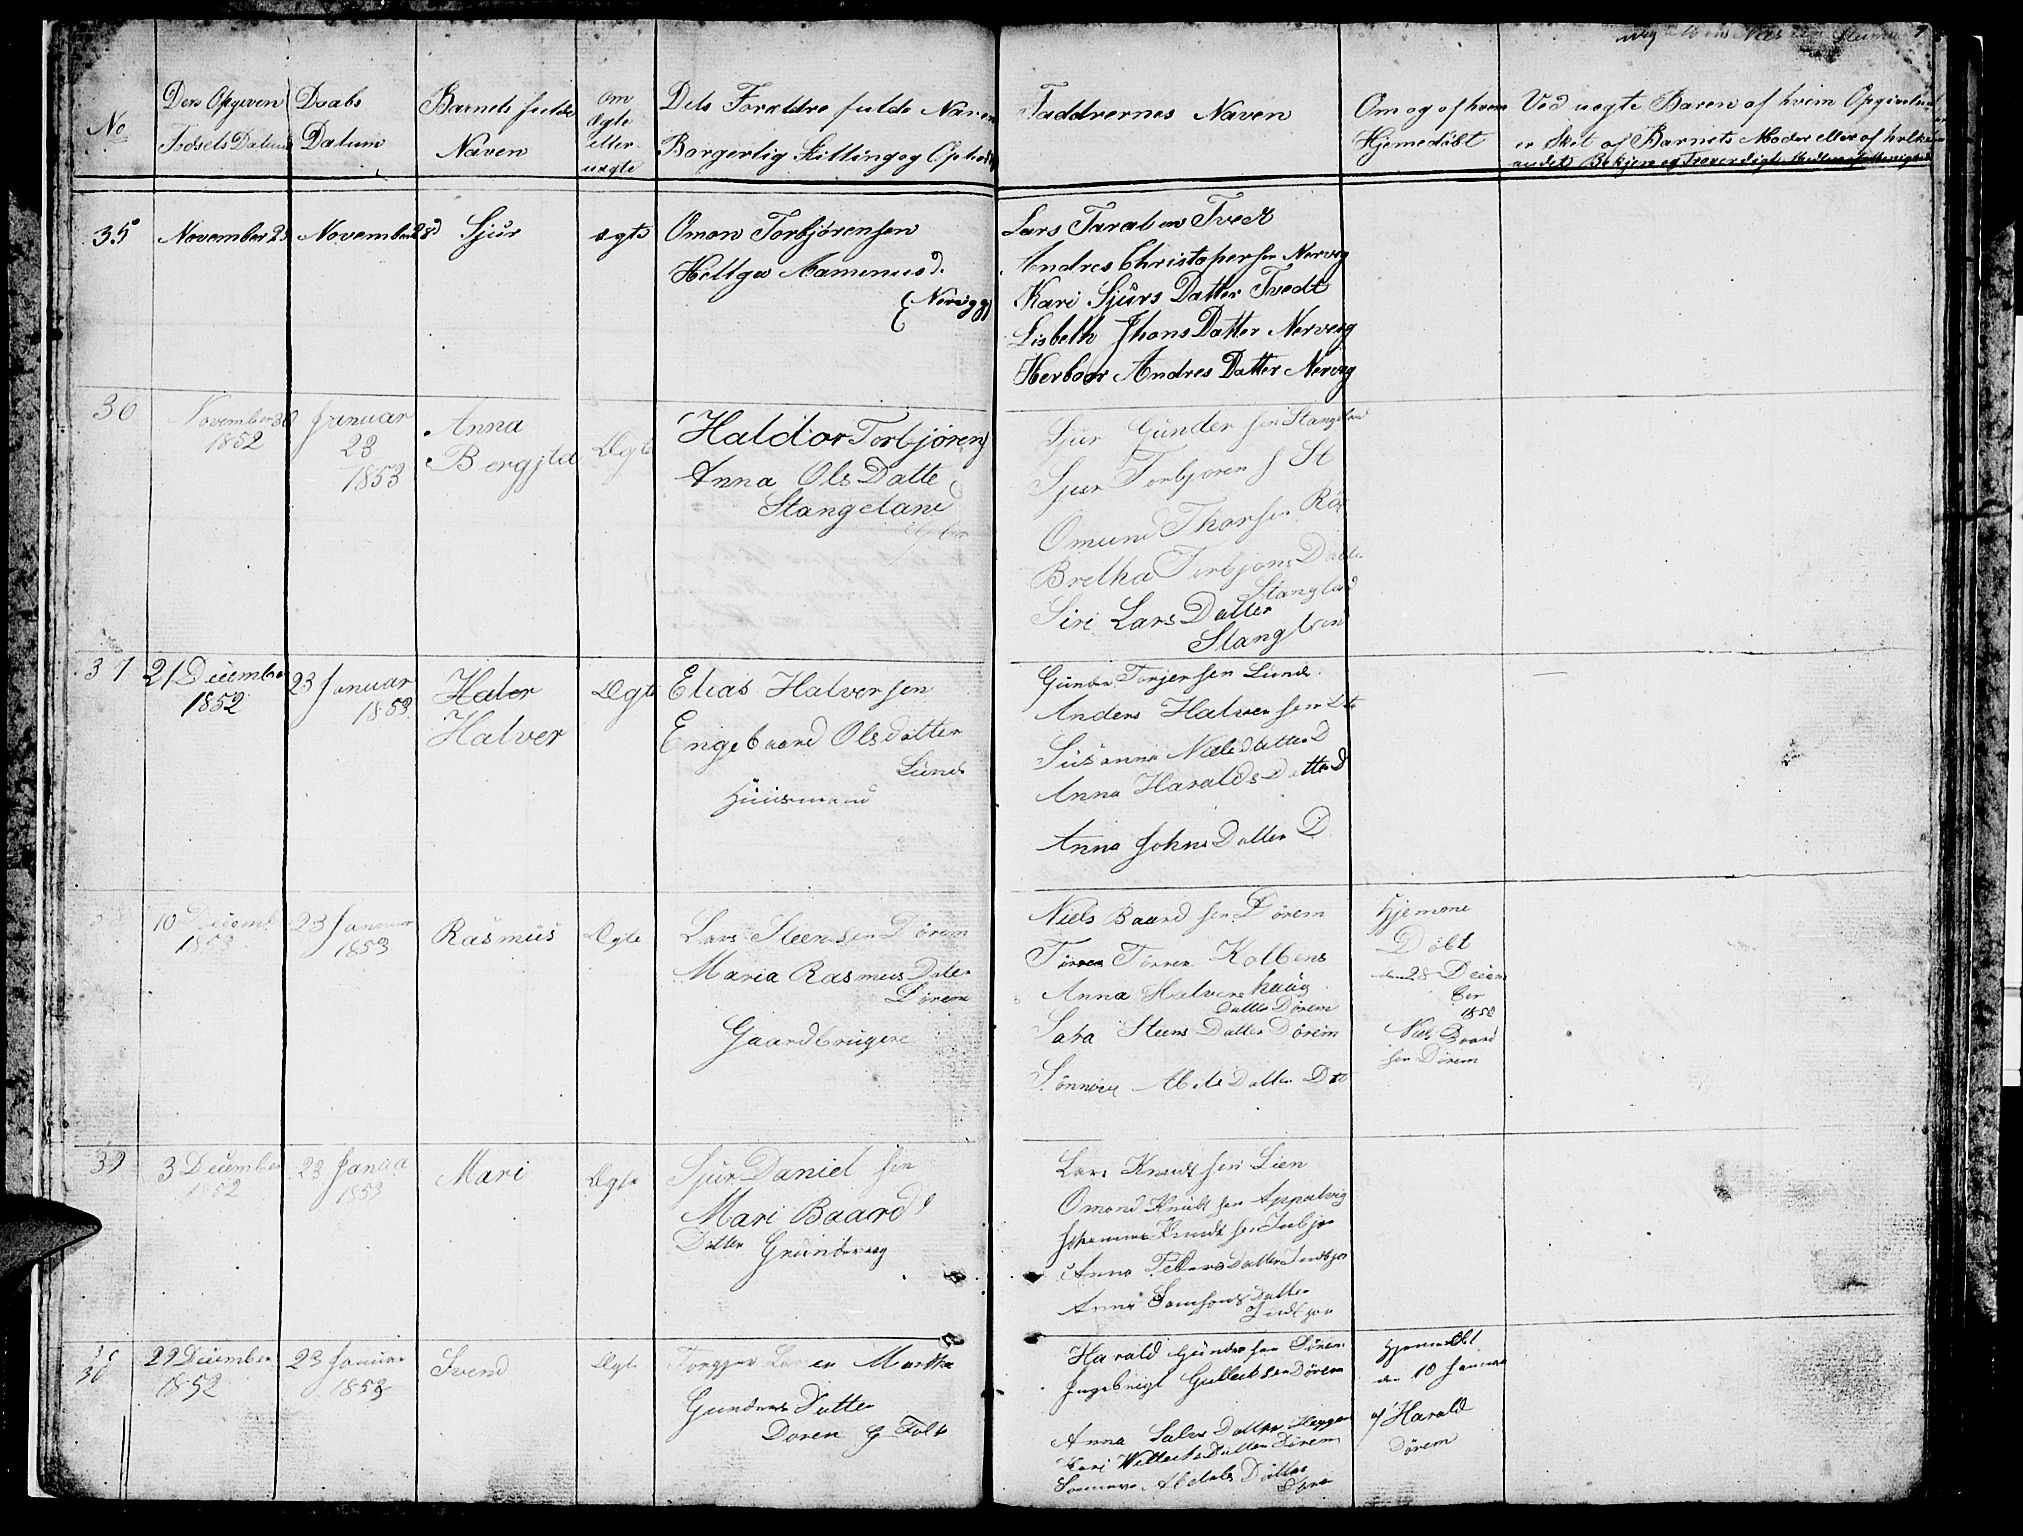 No
Den Opgiven
Fødsels Datum
Daabs
Datum
Barnets fulde
Naven
Om
Ægte
eller
uægte
Dets Foraldre fulde Naven
Borgerlig Stilling og Ophold
Faddrernes Naven
Om og af hvem
Hjemedöbt
Ved uegte Baren af hvem Opgivelsen
er Sket af Barnets Moder eller af hvilken
35
November 23
November 28d
Sjur
ægte
Omon Torbjörensen
Helga Aamunds d.
(Nervigg)
Lars Taralsen Tvedt
Andres Christopersen Nerveg
Kari Sjurs Datter Tvedt
Lisbeth Jhons Datter Nerveg
Herboor Andres Datter Nerveg
36
November 30
1852
Januar
23
1853
Anna
Bergjtd
Ægte
Haldor Torbjörens
Anna Ols Datte
Stangeland
Sjur Gunder sen Stangeland
Sjur Torbjoren s St
Omund Thorsen Rö
Bretha Torbjons Datte
Stanglad
Siri Lars Datter
Stangland
37
21 December
1852
23 Januar
1853
Haler
Halver
Ægte
Elias Halversen
Engebaard Olsdatter
Lunde
Huusmand
Gunder Torjersen Lunde
Anders Halversen Dto
Susanna Nels datter D
Anna Haralds Datter D
Anna Johns Datter D
38
10 Decemb
23 Januar
1853
Rasmus
Ægte
Lars Steensen Dörem
Maria Rasmus Dater
Dörem
Gaardbrugere
Niels Baardsen Dörem
Törren Kolbens
haug
Anna Halvers
Datter Dörem
Sara Steens Datter Dörem
Sönneva Abels Datter Dto
Hjemme
Döbt
den 28 Decem
ber
1852
Niels Baard
sen Dörem
39
3 December
1852
23 Janua
1853
Mari
Ægte
Sjur Daniel sen
Mari Baards
Datter Grundevaag
Lars Knudtsen Lien
Omond Knudtsen Appalvig
Johannes Knudtsen Indbjoe
Anna Petters Datter Indbjoe
Anna Samsons Datter
Indbjoe
30
29 December
1852
23 Januar
1853
Svend
Ægte
Torgjer Larsen Martha
Gunders Datter
Doren G Folk
Harald Gundersen Dörem
Ingebrigt Gulleiksen Dörem
Anna Salvs Datter
Kari Willeiks Datter Dörem
Hjemedöbt
den 10 Januar
af Harald
Dörem